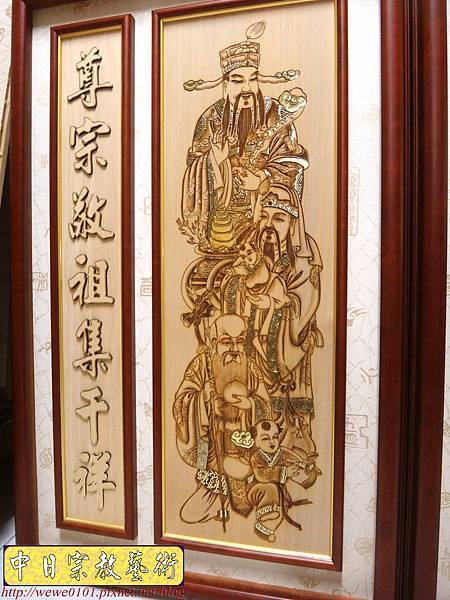 尊宗敬祖集千祥
中日宗教藝術
http://wewe0101.pixnet.net/blog